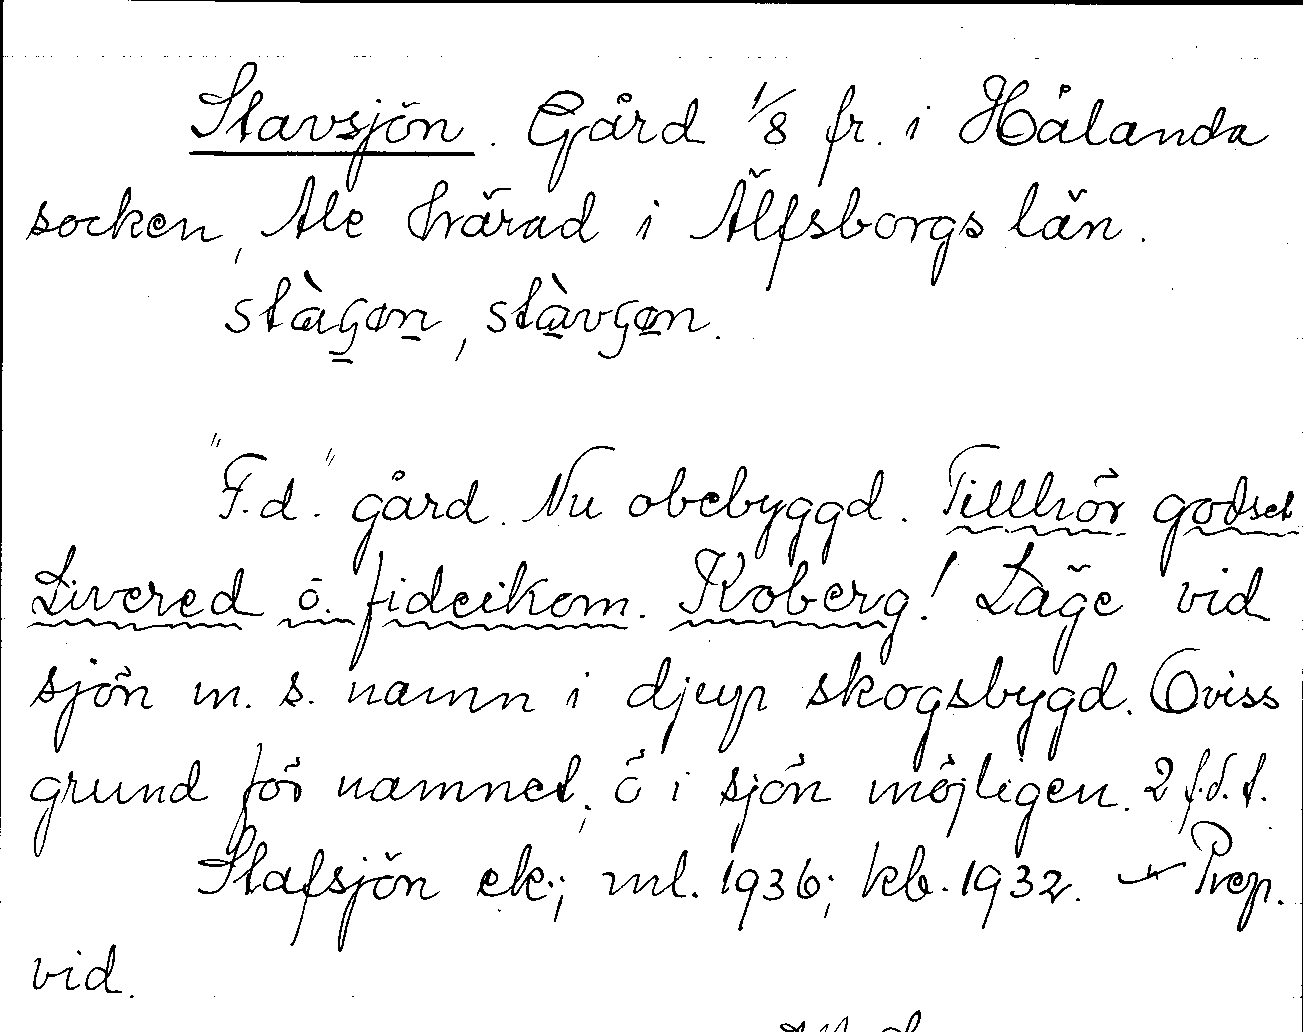 Stavsjön. Gård 1/8 fr. i Hålanda
socken, Ale härad i Älfsborgs län.
"F.d." gård. Nu obebyggd. Tillhör godset
Livered o. fideikom. Koberg! Läge vid
sjön m. s. namn i djup skogsbygd. Oviss
grund för namnet; ö i sjön möjligen. 2 f.d.t.
Stafsjön ek.; ml. 1936; kb. 1932. — Prep.
vid.